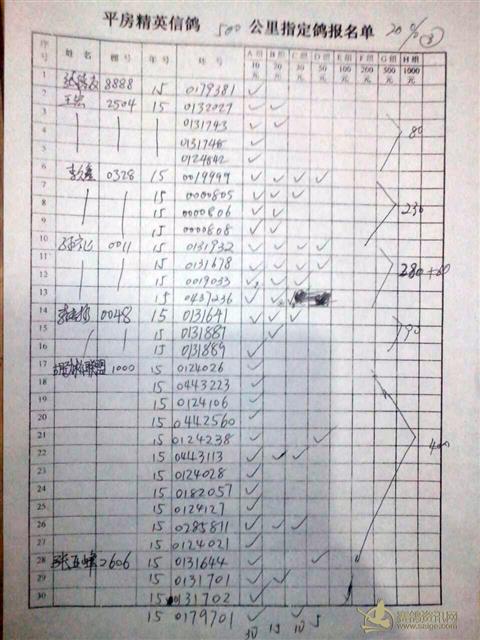 平房精英信鸽 500 公里指定鸽报名单 20% ③
序号 姓名 棚号 年号 环号 A组10元 B组20元 C组30元 D组50元 E组100元 F组200元 G组500元 H组1000元
1 8888 15 0179381 ✓
2 王宏 2504 15 0132027 ✓ ✓
3 0131743 ✓ ✓ 80
4 0131748 ✓
5 0124842 ✓
6 0328 15 0019999 ✓ ✓ ✓ ✓
7 15 0000805 ✓ ✓ ✓
8 15 0000806 ✓ ✓ 230
9 15 0000808 ✓ ✓
10 0011 15 0131932 ✓ ✓ ✓ ✓
11 15 0131678 ✓ ✓ ✓ ✓
12 15 0019033 ✓ ✓ ✓ 280+60
13 15 0437236 ✓ ✓
14 0048 15 0131641 ✓ ✓ ✓
15 15 0131887 ✓ 90
16 15 0131889 ✓
17 联盟 1000 15 0124026 ✓
18 15 0443223 ✓
19 15 0124106 ✓
20 15 0442560 ✓
21 15 0124238 ✓ ✓
22 15 0443113 ✓ ✓ ✓
23 15 0124028 ✓
24 15 0182057 ✓
25 15 0124127 ✓
26 15 0285811 ✓ ✓ ✓
27 15 0124021 ✓
28 张亚峰 2606 15 0131644 ✓ ✓
29 15 0131701 ✓ ✓
30 15 0131702 ✓
15 0179701 ✓
30 15 10 5
赛鸽资讯网
www.saige.com